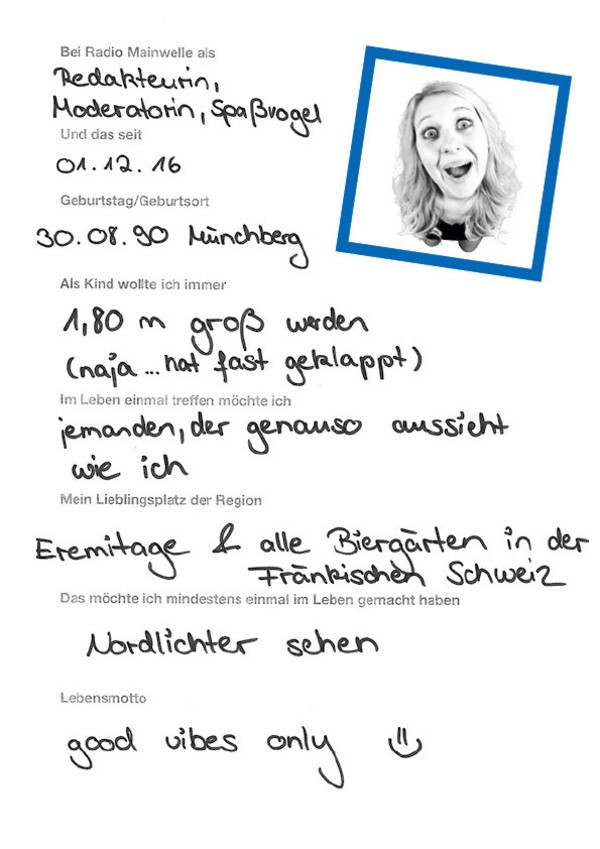 Bei Radio Mainwelle als
Redakteurin,
Moderatorin, Spaßvogel
Und das seit
01.12.16
Geburtstag/Geburtsort
30.08.90 Münchberg
Als Kind wollte ich immer
1,80 m groß werden
(naja ... hat fast geklappt)
Im Leben einmal treffen möchte ich
jemanden, der genauso aussieht
wie ich
Mein Lieblingsplatz der Region
Eremitage & alle Biergärten in der
Fränkischen Schweiz
Das möchte ich mindestens einmal im Leben gemacht haben
Nordlichter sehen
Lebensmotto
good vibes only